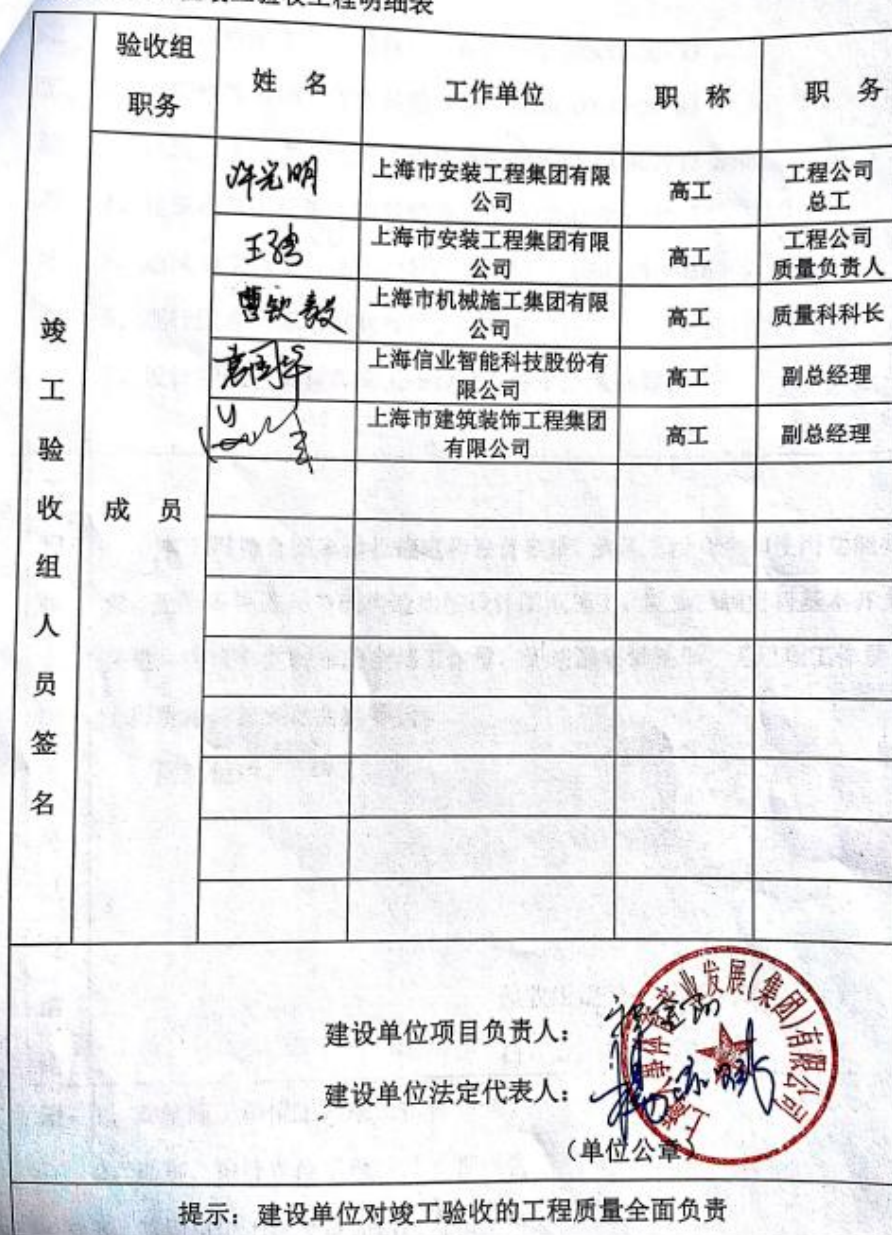 工验收工程明细表
验收组
职务
姓 名
工作单位
职 称
职 务
竣工验收组人员签名
成 员
许光明
上海市安装工程集团有限
公司
高工
工程公司
总工
上海市安装工程集团有限
公司
高工
工程公司
质量负责人
曹钦毅
上海市机械施工集团有限
公司
高工
质量科科长
上海信业智能科技股份有
限公司
高工
副总经理
上海市建筑装饰工程集团
有限公司
高工
副总经理
建设单位项目负责人：
建设单位法定代表人：
（单位公章）
业发展(集团)有限公司
提示：建设单位对竣工验收的工程质量全面负责